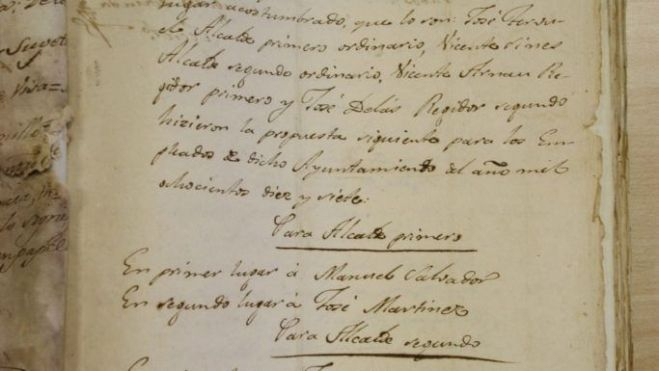 lugar acostumbrado, que lo son: José
Alcalde primero ordinario, Vicente Gines
Alcalde segundo ordinario, Vicente Arnau Re-
gidor primero y José Delás Regidor segundo
hizieron la propuesta siguiente para los Em-
pleados de dicho Ayuntamiento del año mil
ochocientos diez y siete:
Para Alcalde primero
En primer lugar á Manuel Calvador
En segundo lugar á José Martinez
Para Alcalde segundo